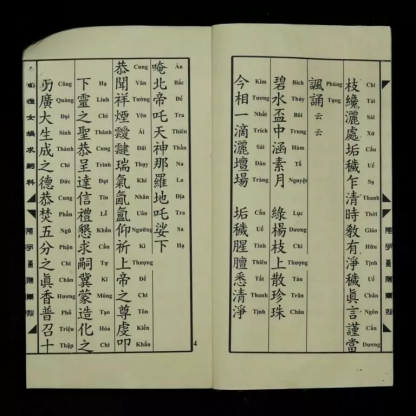 枝纔灑處垢穢乍清時教有淨穢眞言謹當
Chi Tài Sái Xứ Cấu Uế Sạ Thanh Thời Giáo Hữu Tịnh Uế Chân Ngôn Cẩn Đương
諷誦云云
Phúng Tụng
碧水盃中涵素月 綠楊枝上散珍珠
Bích Thủy Bôi Trung Hàm Tố Nguyệt Lục Dương Chi Thượng Tán Trân Châu
今相一滴灑壇場 垢穢腥膻悉清淨
Kim Tương Nhất Trích Sái Đàn Tràng Cấu Uế Tinh Chiên Tất Thanh Tịnh
唵北帝吒天神那羅地吒娑下
Án Bắc Đế Tra Thiên Thần Na La Địa Tra Sa Hạ
恭聞祥煙靉靆瑞氣氤氳仰祈上帝之尊虔叩
Cung Văn Tường Yên Ái Đãi Thụy Khí Nhân Uân Ngưỡng Kì Thượng Đế Chi Tôn Kiền Khấu
下靈之聖恭呈達信禮懇求嗣冀蒙造化之
Hạ Linh Chi Thánh Cung Trình Đạt Tín Lễ Khẩn Cầu Tự Kí Mông Tạo Hóa Chi
功廣大生成之德恭焚五分之眞香普召十
Công Quảng Đại Sinh Thành Chi Đức Cung Phần Ngũ Phận Chi Chân Hương Phổ Triệu Thập
4